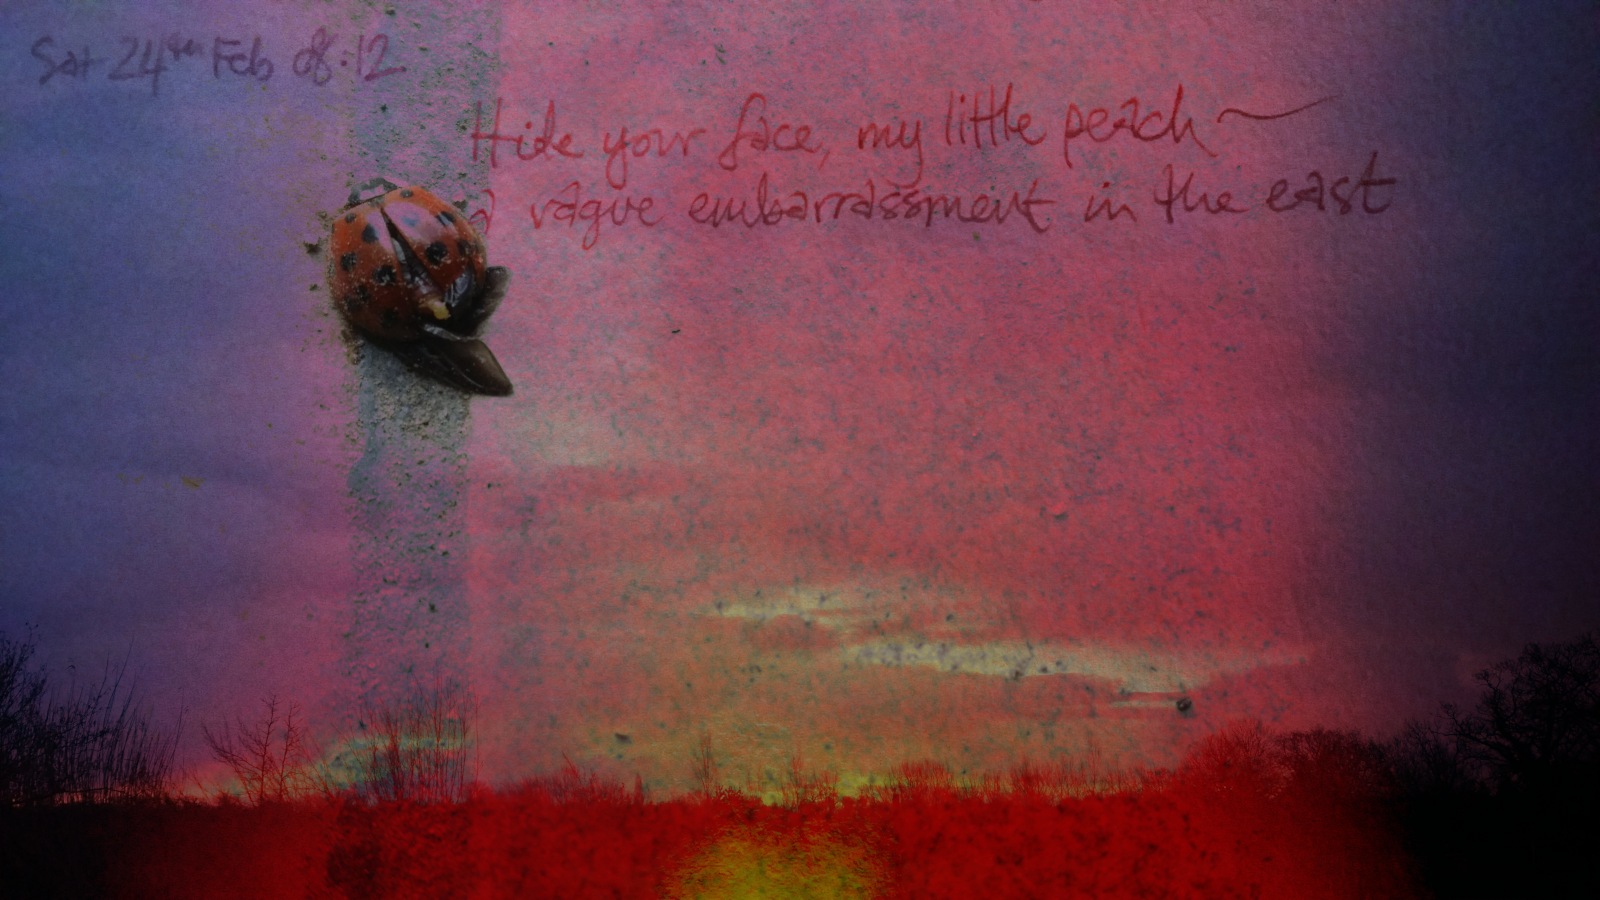 Sat 24th Feb 08:12
Hide your face, my little peach ~
a vague embarrassment in the east